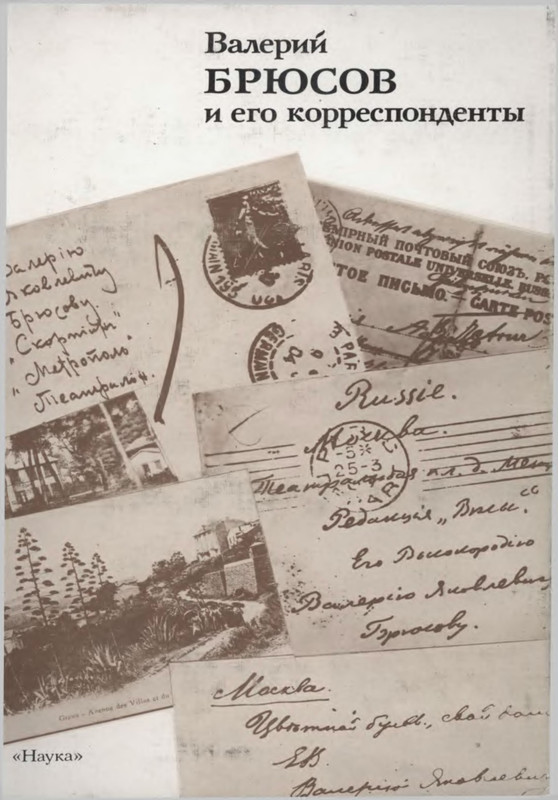 Валерий
БРЮСОВ
и его корреспонденты
Валерію
Яковлевичу
Брюсову.
"Скорпіонъ"
"Метрополь"
Театральн.
МІРНЫЙ ПОЧТОВЫЙ СОЮЗЪ.
UNION POSTALE UNIVERSELLE. RUSS
ТОЕ ПИСЬМО. — CARTE POS
PAR
GERMAIN
Russie.
Москва.
25-3
Театральная пл. д. Мет
Редакція „Вѣсы“
Его Высокородію
Валерію Яковлевич
Брюсову.
Avenue des Villas et du
Москва.
Цвѣтной бульв., свой дом
ЕВ
Валерію Яковлевич
«Наука»